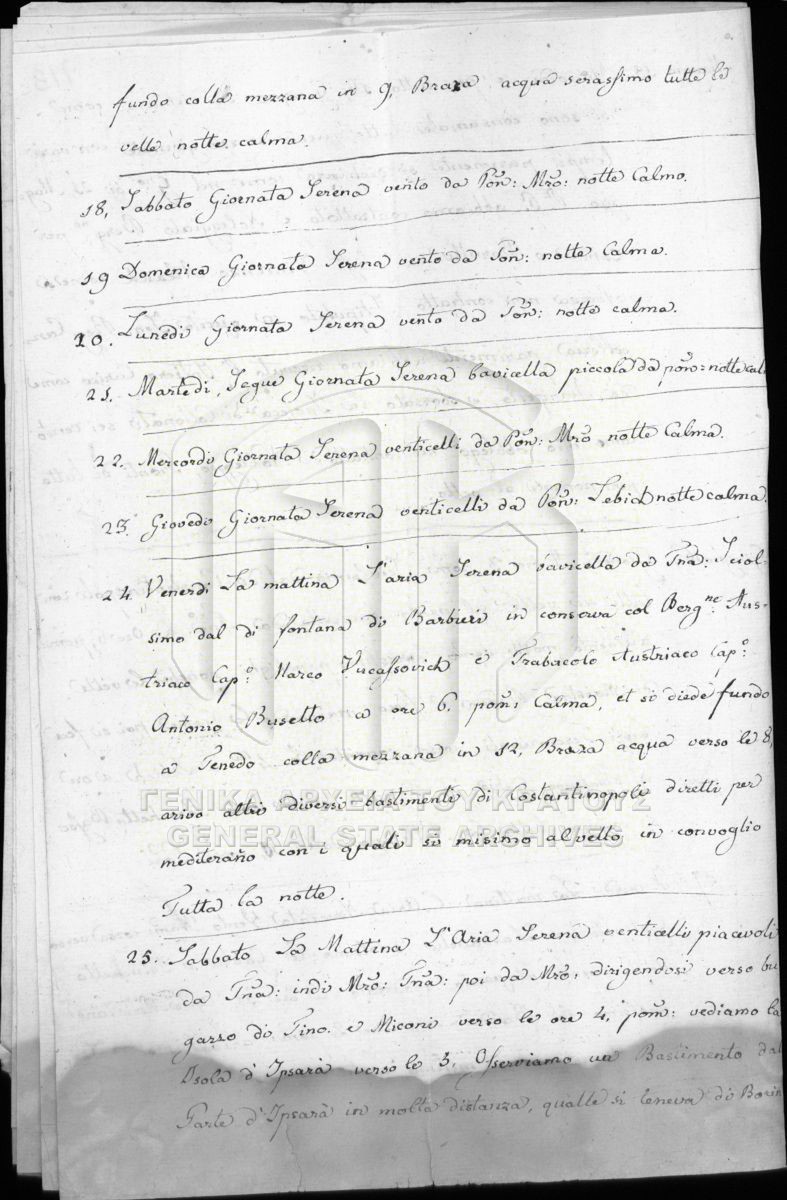 fundo colla mezzana in 9, Braza acqua serassimo tutte le
velle notte calma.
18, Sabbato Giornata Serena vento da Pon: Mro: notte Calmo.
19 Domenica Giornata Serena vento da Pon: notte Calma.
20. Lunedi Giornata Serena vento da Pon: notte calma.
21. Martedi, Segue Giornata Serena bavicella piccola da pon: notte cal
22. Mercordi Giornata Serena venticelli da Pon: Mro notte Calma.
23. Giovedi Giornata Serena venticelli da Pon: Lebich notte calma.
24. Venerdi La mattina L'aria Serena bavicella da Tna: Sciol-
simo dal di fontana di Barbieri in conserva col Berg.ne Aus-
triaco Cap.o Marco Vucassovich e Trabacolo Austriaco Cap.o
Antonio Busetto a ore 6, pom: Calma, et si diede fundo
a Tenedo colla mezzana in 12, Braza acqua verso le 8,
arivo altri diversi bastimenti di Costantinopoli diretti per
mediteraño con i quali si misimo al vello in convoglio
Tutta la notte.
25. Sabbato La Mattina L'Aria Serena venticelli piacevoli
da Tna: indi Mro: Tna: poi da Mro: dirigendosi verso bu
gazzo di Tino. e Miconi verso le ore 4, pom: vediamo la
Isola d'Ipsarà verso le 5, Osserviamo un Bastimento dal
Parte d'Ipsarà in molta distanza, qualle si teneva di Borin
ΓΕΝΙΚΑ ΑΡΧΕΙΑ ΤΟΥ ΚΡΑΤΟΥΣ
GENERAL STATE ARCHIVES